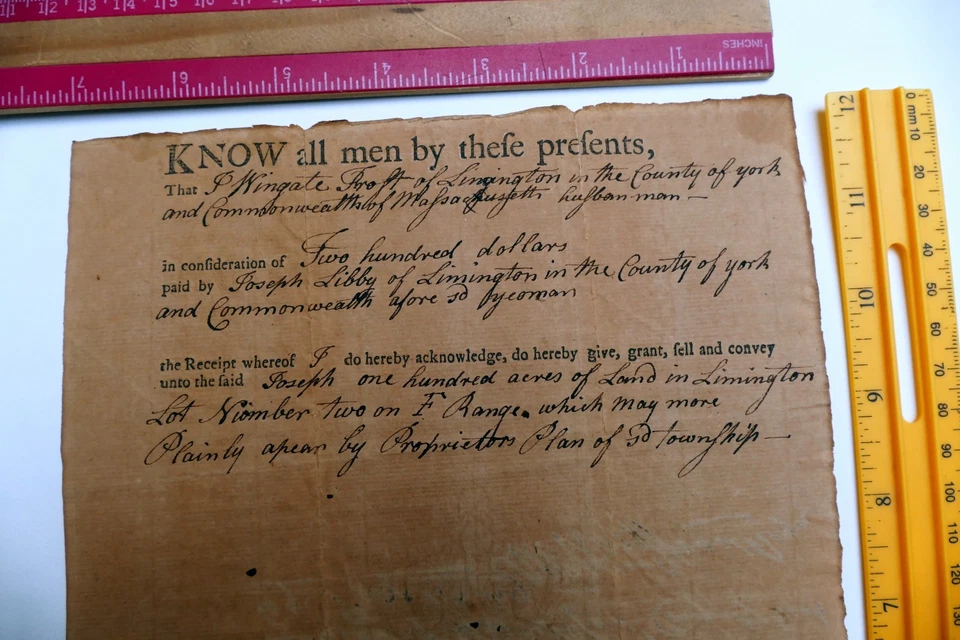 INCHES
1 2 3 4 5 6 7
KNOW all men by theſe preſents,
That I Wingate Froſt of Limington in the County of york
and Commonwealth of Maſsachuſsetts huſbanman —
in conſideration of Two hundred dollars
paid by Joseph Libby of Limington in the County of york
and Commonwealth afore sd yeoman
the Receipt whereof I do hereby acknowledge, do hereby give, grant, ſell and convey
unto the ſaid Joseph one hundred acres of Land in Limington
Lot Niomber two on F Range which may more
Plainly apear by Proprietors Plan of sd townſhip —
12 11 10 9 8 7
0 mm 10 20 30 40 50 60 70 80 90 100 110 120 130